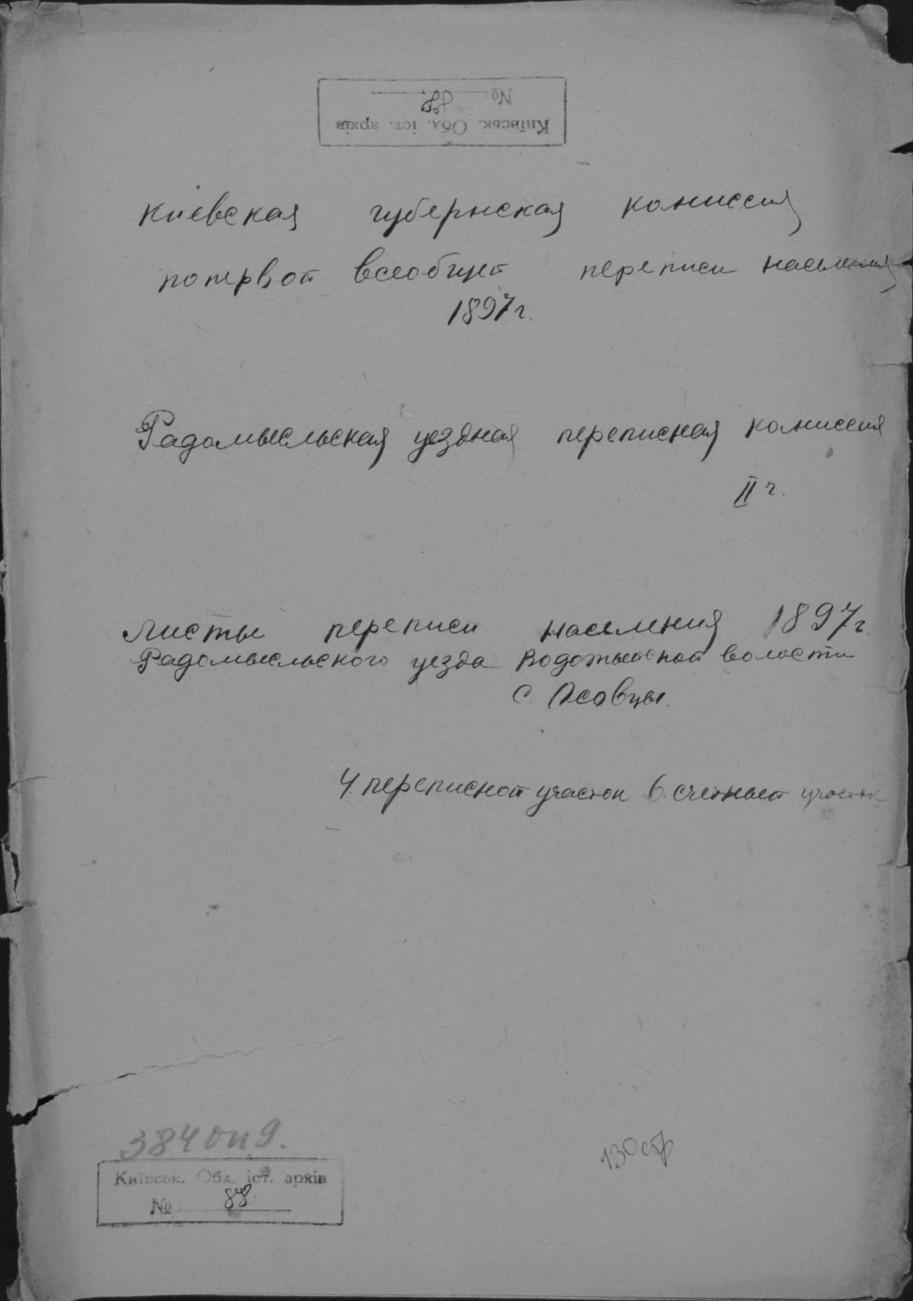 Київськ. Обл. іст. архів
№ 88
Киевская губернская комиссия
по первой всеобщей переписи населения
1897 г.
Радомысльская уездная переписная комиссия
II ч.
Листы переписи населения 1897 г.
Радомысльского уезда Водотыевской волости
с. Осовцы.
4. переписной участок 6. счетный участок
384 оп 9.
130 стр
Київськ. Обл. іст. архів
№ 88